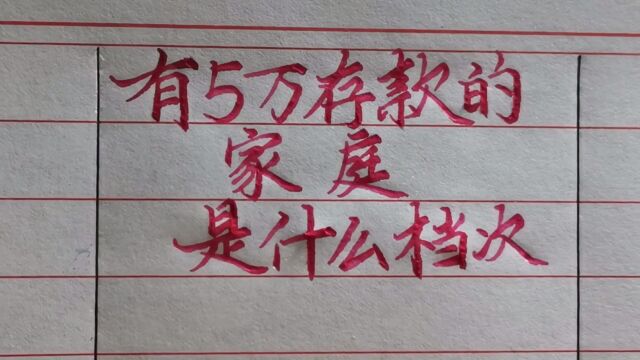 有5万存款的
家庭
是什么档次